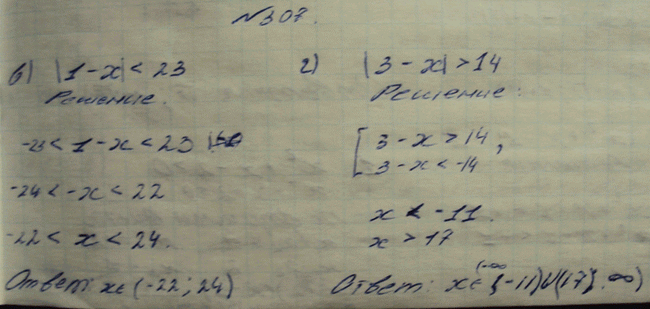 №307.
в) |1-x| < 23
Решение.
-23 < 1-x < 23
-24 < -x < 22
-22 < x < 24.
Ответ: x∈(-22; 24)
г) |3-x| > 14
Решение:
[ 3-x > 14,
3-x < -14
x < -11.
x > 17
Ответ: x∈(-∞; -11)∪(17; ∞)